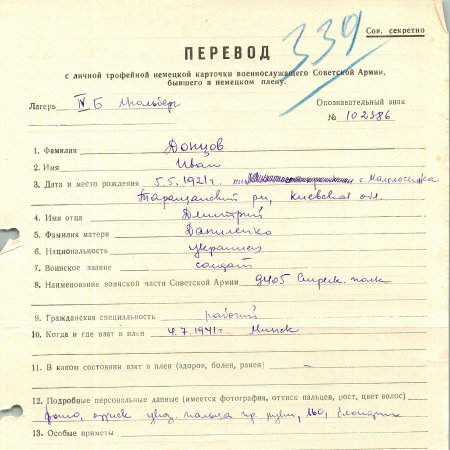 339
Сов. секретно
ПЕРЕВОД
с личной трофейной немецкой карточки военнослужащего Советской Армии,
бывшего в немецком плену.
Лагерь IV Б Мюльберг
Опознавательный знак
№ 102386
1. Фамилия Донцов
2. Имя Иван
3. Дата и место рождения 5.5.1921г. с.
Таращанский р-н, Киевская обл.
4. Имя отца Дмитрий
5. Фамилия матери Даниленко
6. Национальность украинец
7. Воинское звание солдат
8. Наименование воинской части Советской Армии 9405 Стрелк. полк
9. Гражданская специальность рабочий
10. Когда и где взят в плен 4.7.1941г. Минск
11. В каком состоянии взят в плен (здоров, болен, ранен) —
12. Подробные персональные данные (имеется фотография, оттиск пальцев, рост, цвет волос)
фото, оттиск указ. пальца пр. руки, 160, блондин
13. Особые приметы —